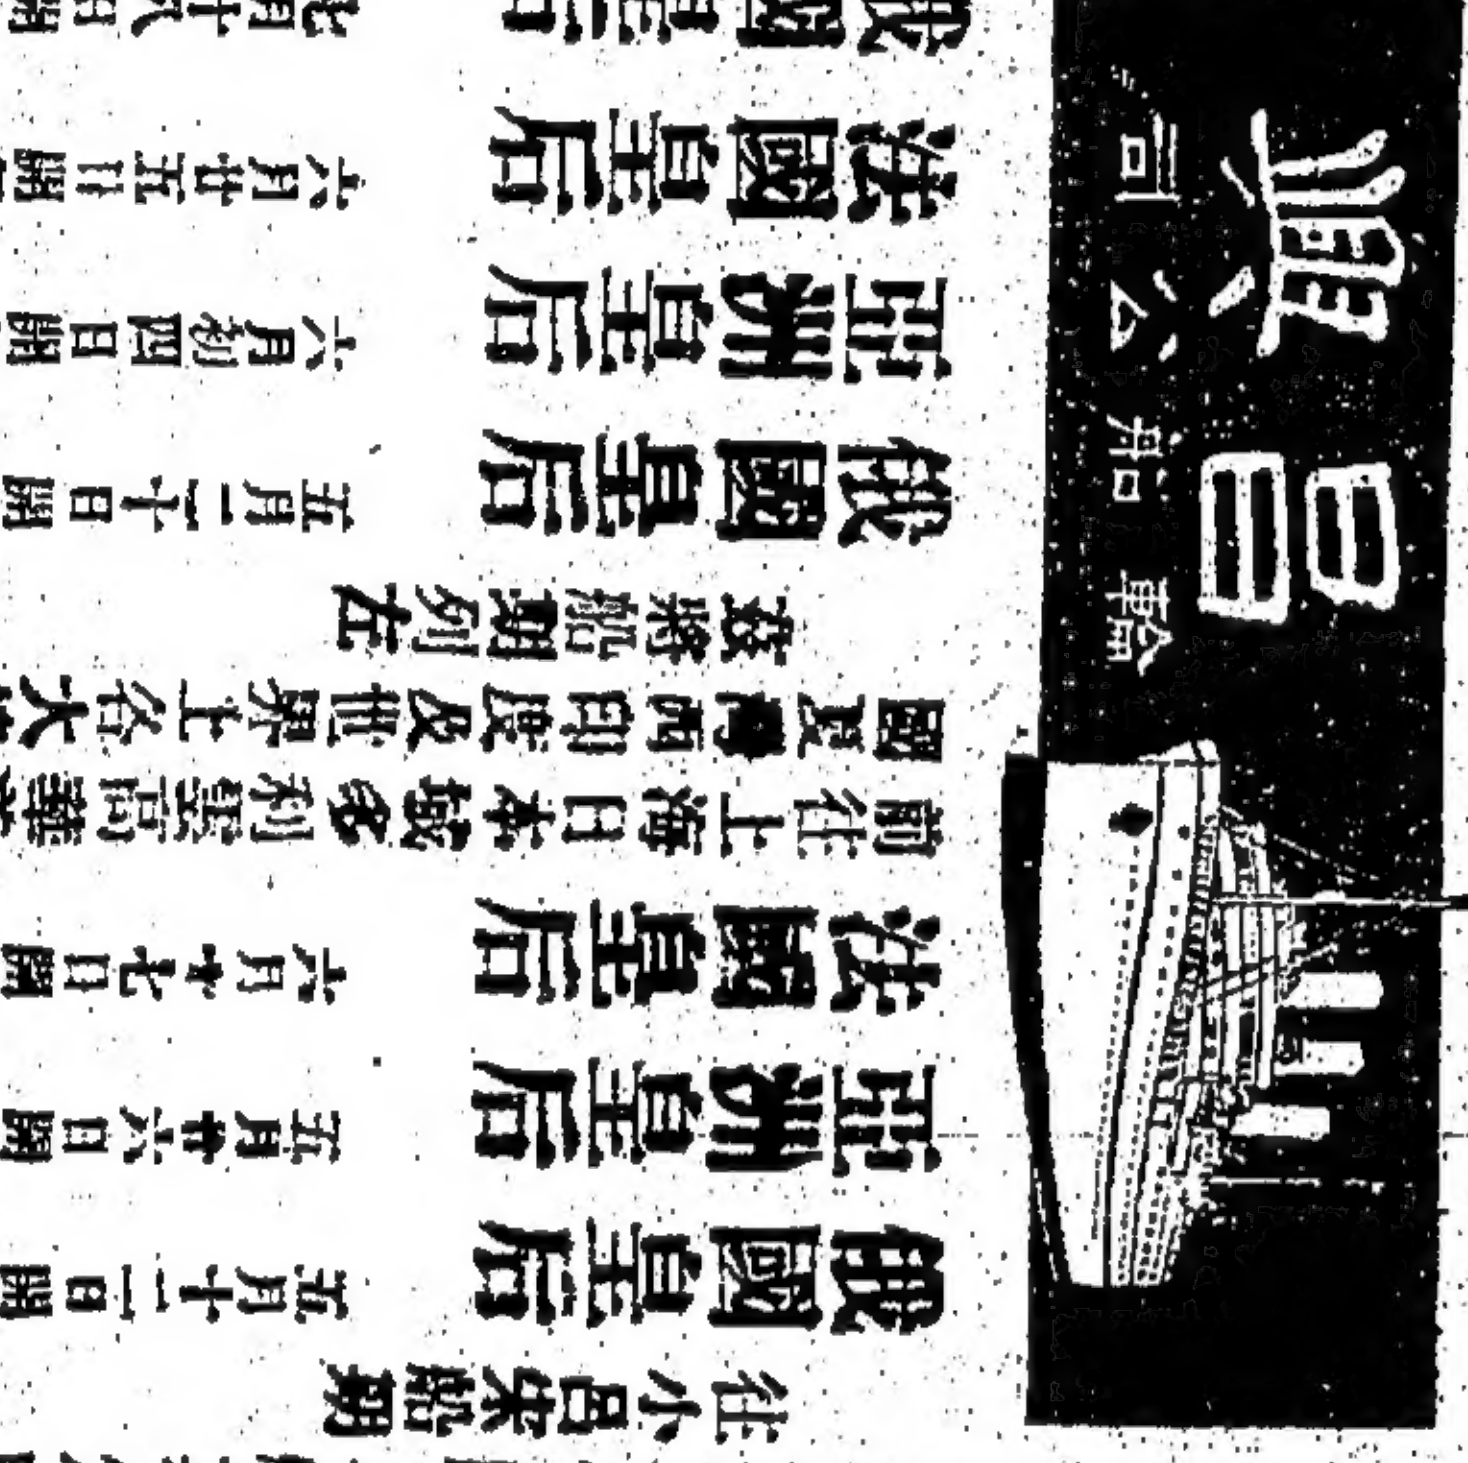 昌興
輪船公司
往小呂宋船期
俄國皇后 五月十二日開
亞洲皇后 五月廿六日開
法國皇后 六月十七日開
前往上海日本域多利雲高華
國夏西印度及世界上各大
茲將船期列左
俄國皇后 五月二十日開
亞洲皇后 六月初四日開
法國皇后 六月廿五日開
俄國皇后